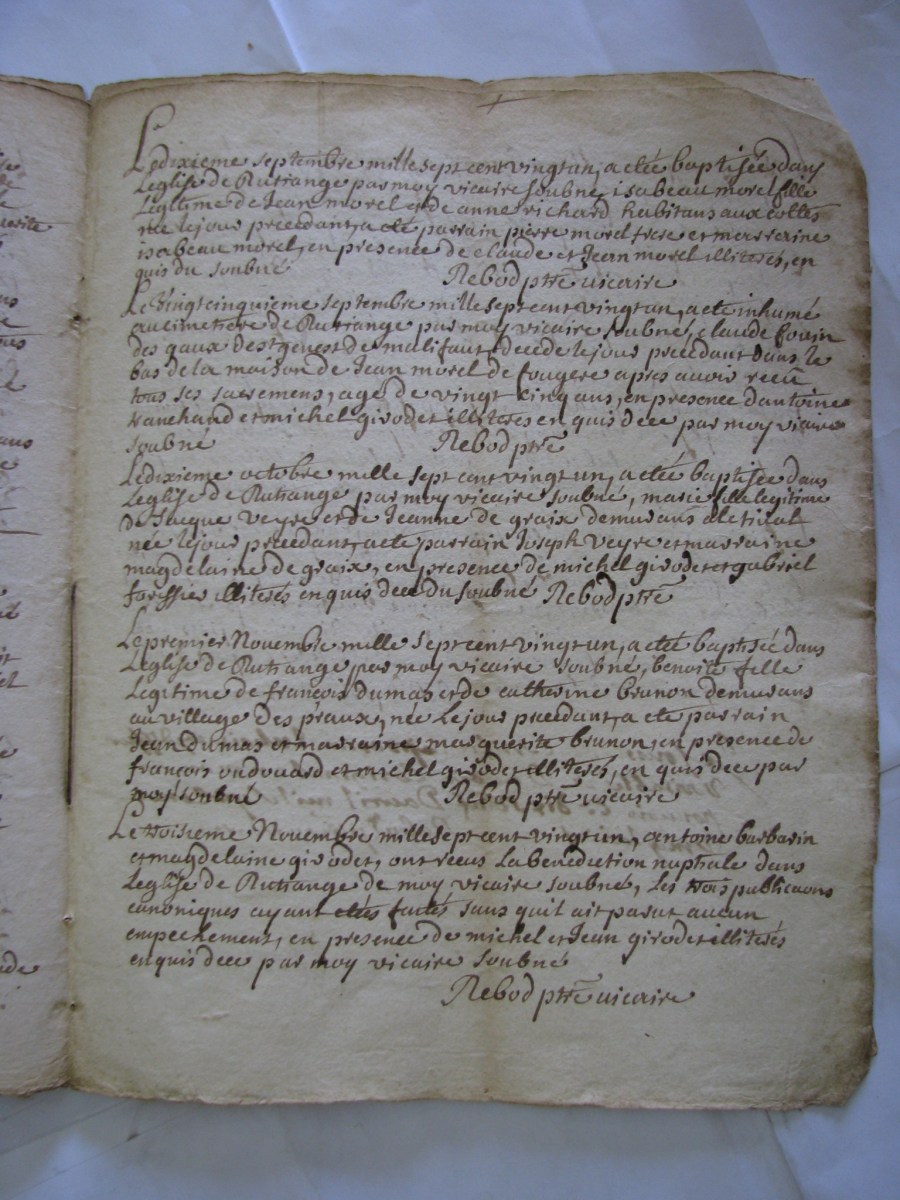 Le dixieme septembre mille sept cent vingt un, a eté baptisée dans
Leglise de Rutiange par moy vicaire soubné, isabeau morel fille
Legitime de Jean morel et de anne richard habitans aux cottes
née le jour precedant, a eté parrain pierre morel frere et marraine
isabeau morel, en presence de claude et Jean morel illiterés, en
quis du soubné Rebod ptrē vicaire
Le Vingt cinquieme septembre mille sept cent vingt un, a eté inhumé
au cimetiere de Rutiange par moy vicaire soubné, claude
des gaux de st genest de malifaut, decedé le jour precedant dans le
bas de la maison de Jean morel de fougere apres avoir receu
tous ses sacremens, agé de vingt cinq ans, en presence dantoine
et michel girodet illiterés enquis de ce par moy vicaire
soubné Rebod ptrē
Le dixieme octobre mille sept cent vingt un, a etée baptisée dans
Leglise de Rutiange par moy vicaire soubné, marie fille legitime
de Jacque Veyre et de Jeanne de graix demurans
née le jour precedant, a eté parrain Joseph Veyre et marraine
magdelaine de graix, en presence de michel girodet et gabriel
illiterés enquis de ce du soubné Rebod ptrē
Le premier Novembre mille sept cent vingt un, a eté baptisée dans
Leglise de Rutiange par moy vicaire soubné, benoite fille
Legitime de françois Dumas et de catherine brunon demurans
au village des preaux, née Le jour precedant, a eté parrain
Jean dumas et marraine marguerite brunon, en presence de
françois oudouard et michel girodet illiterés, enquis de ce par
moy soubné Rebod ptrē vicaire
Le troisieme Novembre mille sept cent vingt un, antoine barbarin
et magdelaine girodet, ont receus La benediction nuptiale dans
Leglise de Rutiange de moy vicaire soubné, Les trois publicaons
canoniques ayant etés faites sans quil ait parut aucun
empechement, en presence de michel et Jean girodet illiterés
enquis de ce par moy vicaire soubné
Rebod ptrē vicaire